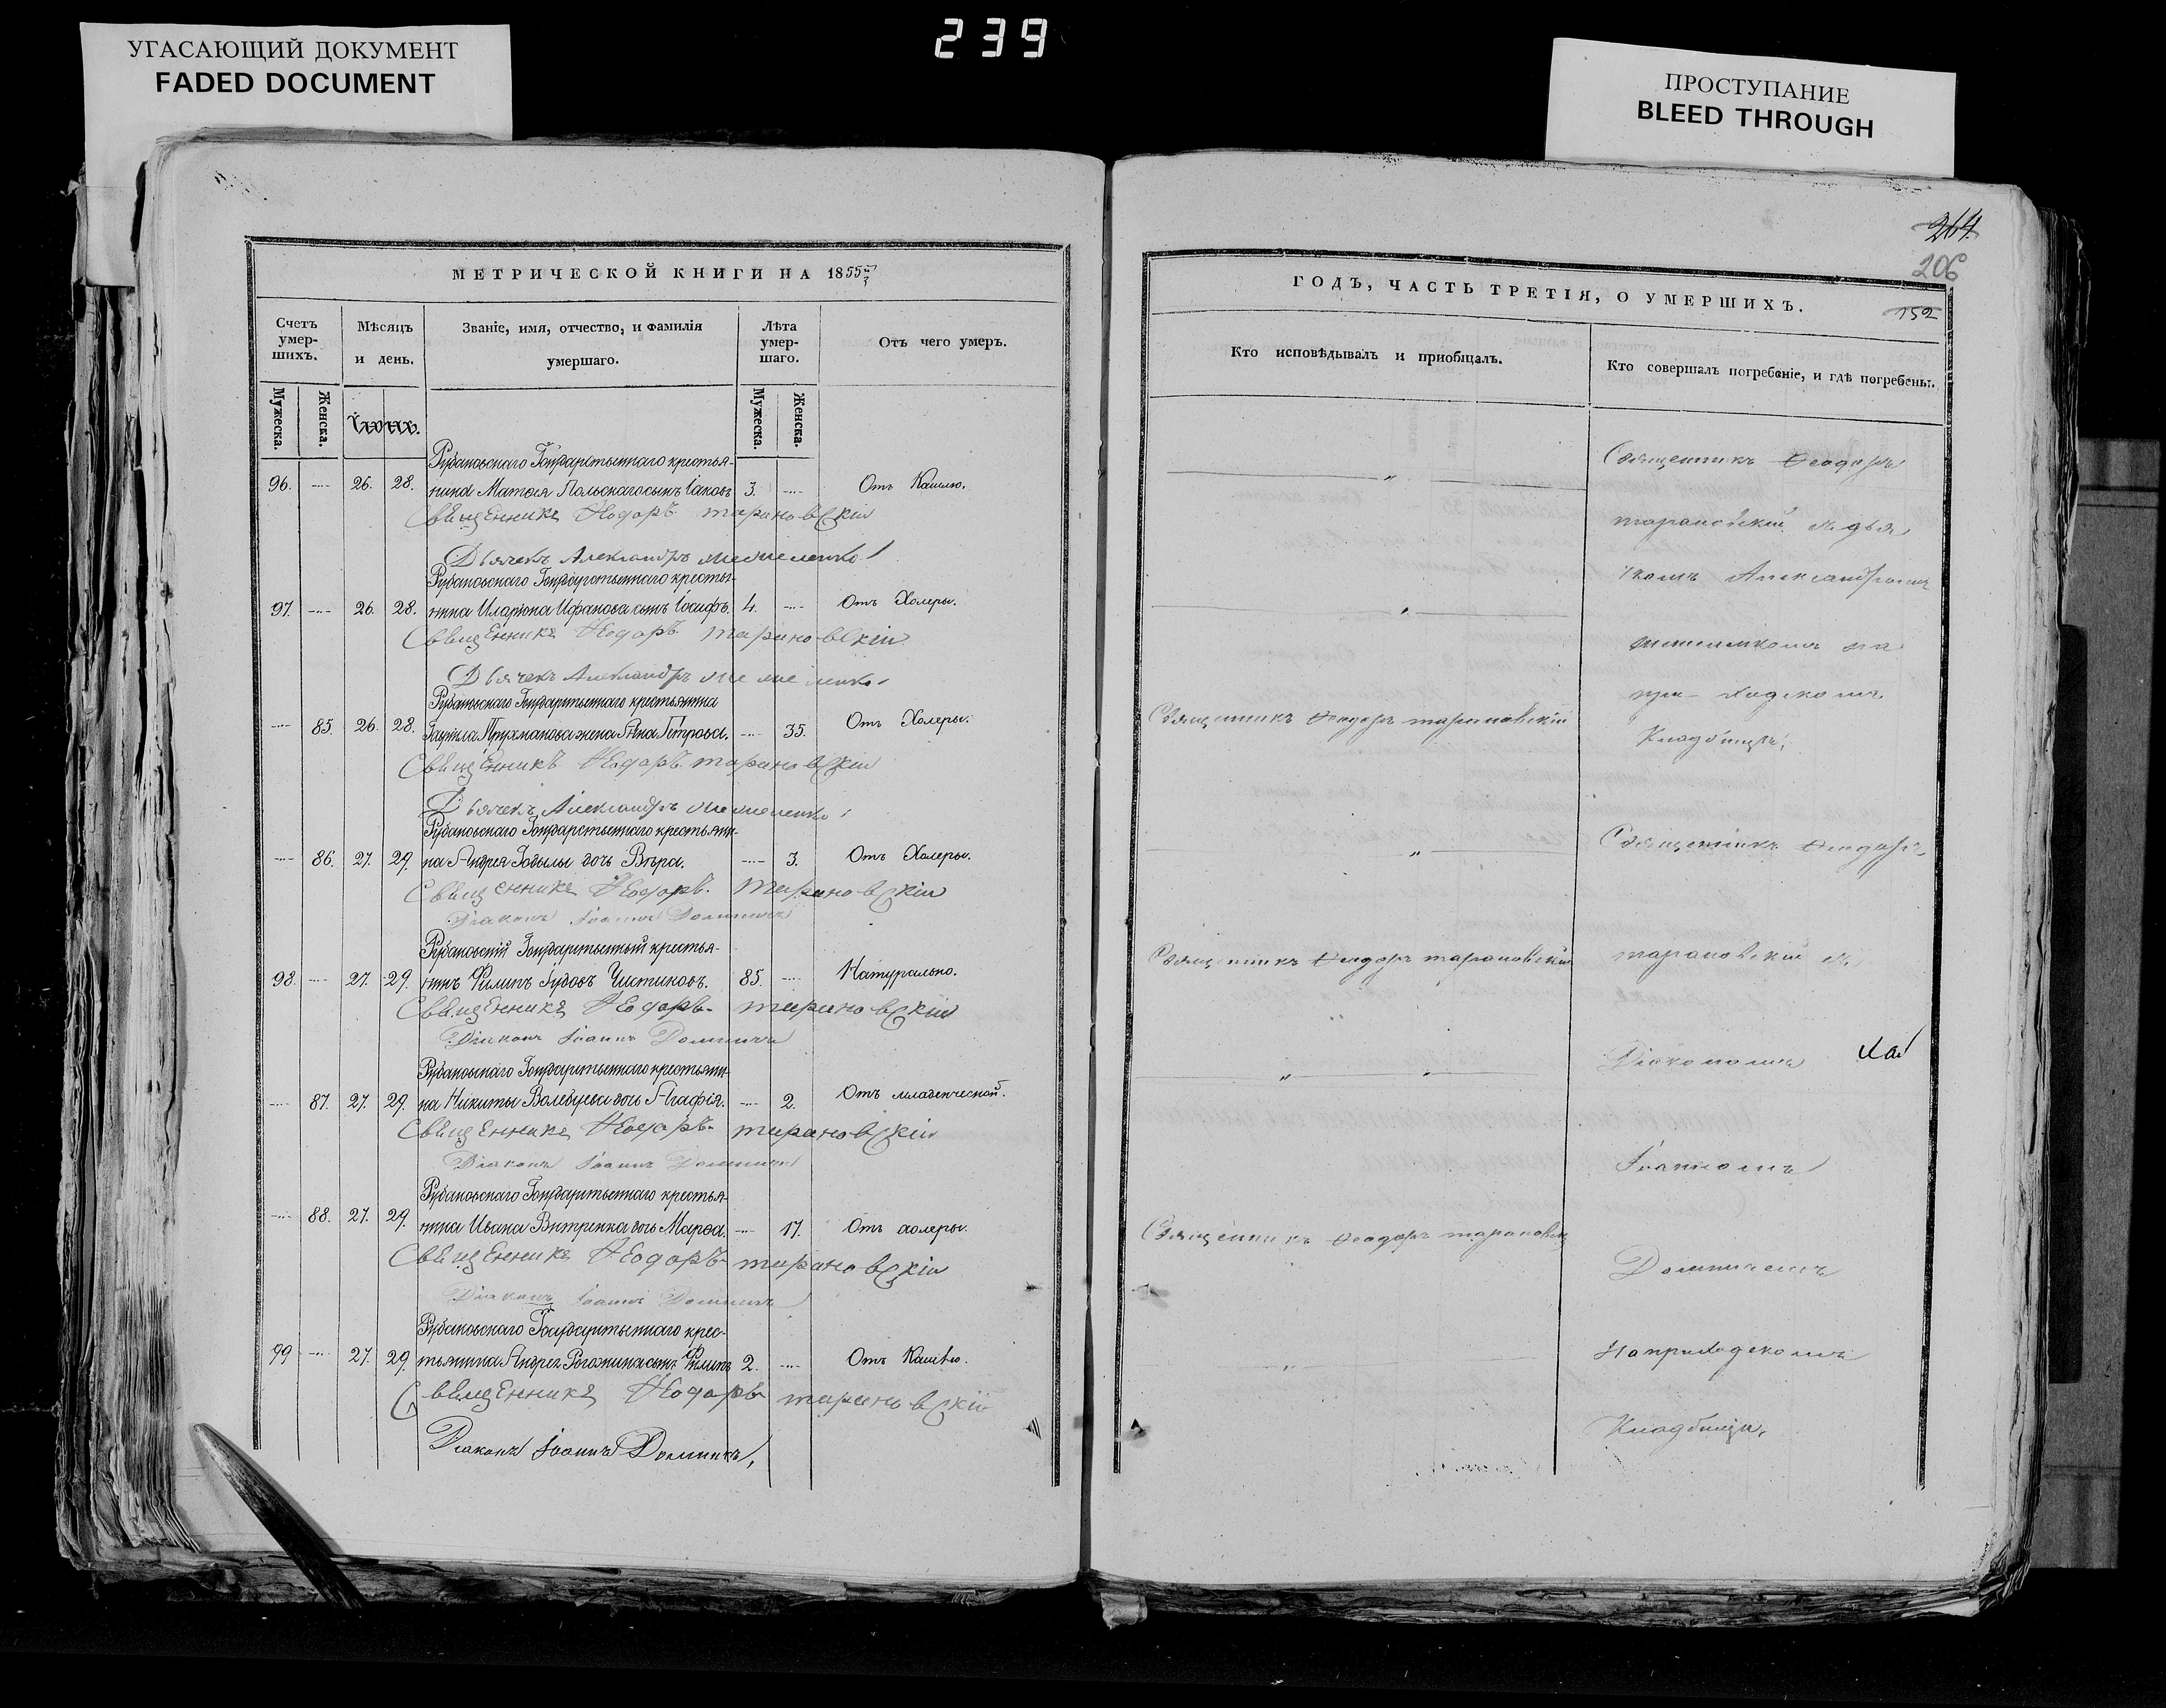 239
УГАСАЮЩИЙ ДОКУМЕНТ
FADED DOCUMENT
ПРОСТУПАНИЕ
BLEED THROUGH
МЕТРИЧЕСКОЙ КНИГИ НА 1855
Счетъ умер-шихъ.
Мѣсяцъ и день.
Званіе, имя, отчество, и фамилія умершаго.
Лѣта умер-шаго.
Отъ чего умеръ.
Мужеска.
Женска.
Мужеска.
Женска.
Рубановскаго Государственнаго крестья-
96. 26. 28. нина Матѳія Польскаго сынъ Іаковъ 3. Отъ Кашлю.
Священникъ Ѳеодоръ Тарановскій
Дьячекъ Александръ
Рубановскаго Государственнаго крестья-
97. 26. 28. нина Иларіона сынъ Іосифъ. 4. Отъ Холеры.
Священникъ Ѳеодоръ Тарановскій
Дьячекъ Александръ
Рубановскаго Государственнаго крестьянина
85. 26. 28. жена Анна Петрова. 35. Отъ Холеры.
Священникъ Ѳеодоръ Тарановскій
Дьячекъ Александръ
Рубановскаго Государственнаго крестьяни-
86. 27. 29. на Андрея дочь Вѣра. 3. Отъ Холеры.
Священникъ Ѳеодоръ Тарановскій
Діаконъ Іоаннъ
Рубановскій Государственный крестья-
98. 27. 29. нинъ Филипъ Чистиковъ. 85. Натурально.
Священникъ Ѳеодоръ Тарановскій
Діаконъ Іоаннъ
Рубановскаго Государственнаго крестьяни-
87. 27. 29. на Никиты дочь Агафія. 2. Отъ младенческой.
Священникъ Ѳеодоръ Тарановскій
Діаконъ Іоаннъ
Рубановскаго Государственнаго крестья-
88. 27. 29. нина Ивана Витренка дочь Марѳа. 17. Отъ холеры.
Священникъ Ѳеодоръ Тарановскій
Діаконъ Іоаннъ
Рубановскаго Государственнаго крес-
99 27. 29. тьянина Андрея сынъ Филипъ 2. Отъ Кашлю.
Священникъ Ѳеодоръ Тарановскій
Діаконъ Іоаннъ
264
206
152
ГОДЪ, ЧАСТЬ ТРЕТІЯ, О УМЕРШИХЪ.
Кто исповѣдывалъ и пріобщалъ.
Кто совершалъ погребеніе, и гдѣ погребены.
Священникъ Ѳеодоръ
Тарановскій
Александромъ
на
при-ходскомъ
Священникъ Ѳеодоръ Тарановскій
Кладбищѣ,
Священникъ Ѳеодоръ
Священникъ Ѳеодоръ Тарановскій
Тарановскій
Діакономъ
Іоанномъ
Священникъ Ѳеодоръ Тарановскій
На приходскомъ
Кладбищѣ,